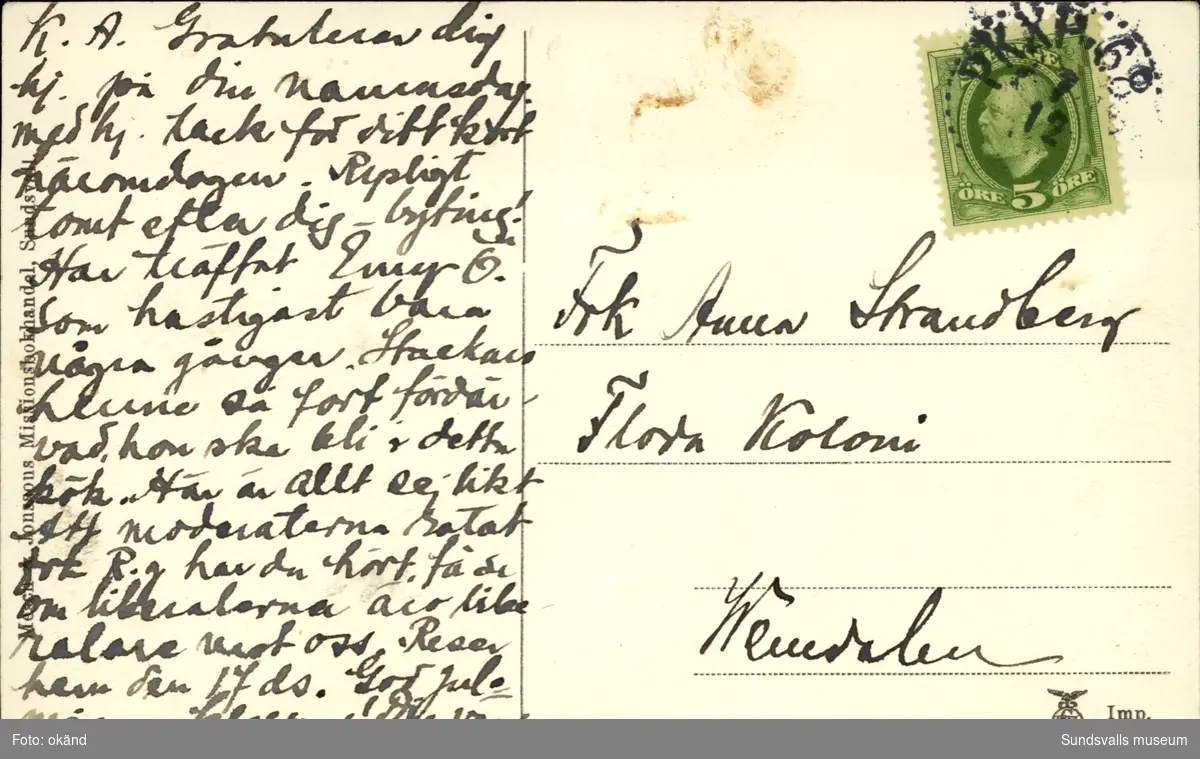 K. A. Gratulerar dig
hj. på din namnsdag.
med hj. tack för ditt kort
häromdagen. Rysligt
tomt efter dig – byting!
Har träffat Emy Ö.
som hastigast bara
några gånger. Stackars
henne så fort fördär-
vad, hon ska bli i detta
kök. Här är allt sej likt
att moderaterna ratat
frk R.g har du hört, få se
om liberalerna äro libe-
ralare mot oss. Reser
hem den 17 ds. God jul=
Jonssons Missionsbokhandel, Sundsvall
SVERIGE
ÖRE 5 ÖRE
12
Frk Anna Strandberg
Flora Koloni
Wemdalen
Imp.
Foto: okänd
Sundsvalls museum